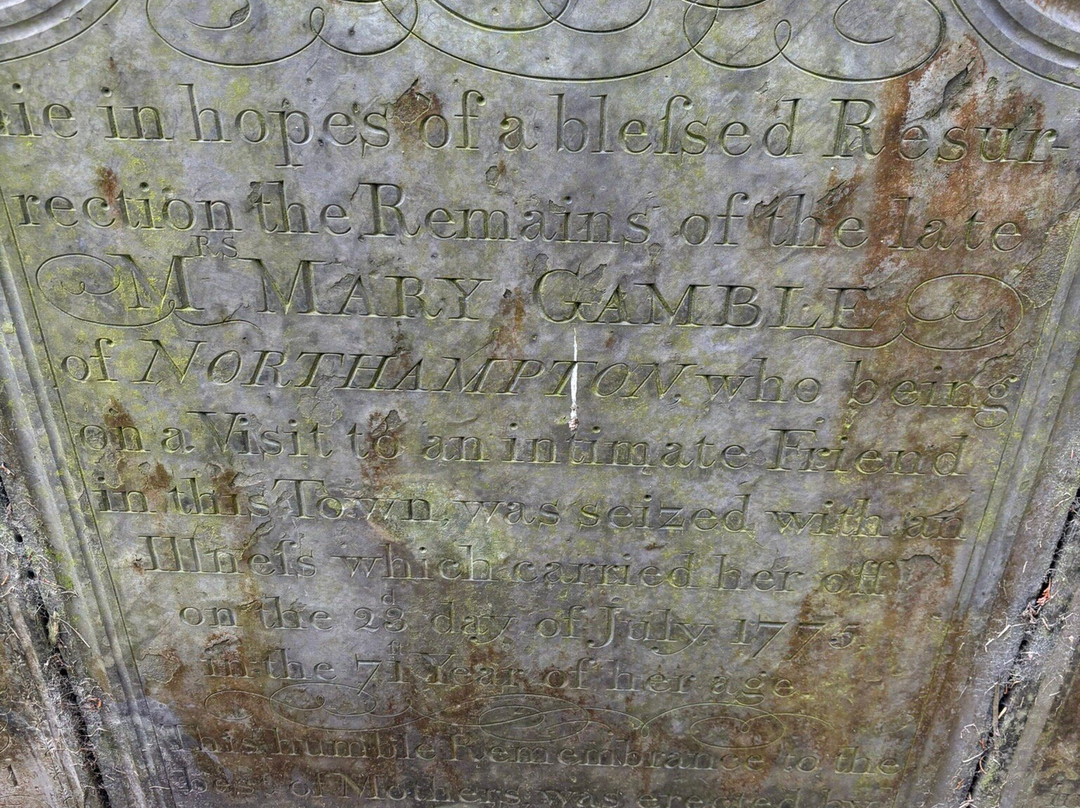 lie in hopes of a bleſsed Resur-
rection the Remains of the late
Mrs Mary Gamble
of NORTHAMPTON, who being
on a Visit to an intimate Friend
in this Town, was seized with an
Illneſs which carried her off
on the 23d day of July 1775.
in the 71st Year of her age
This humble Remembrance to the
Best of Mothers, was erected by